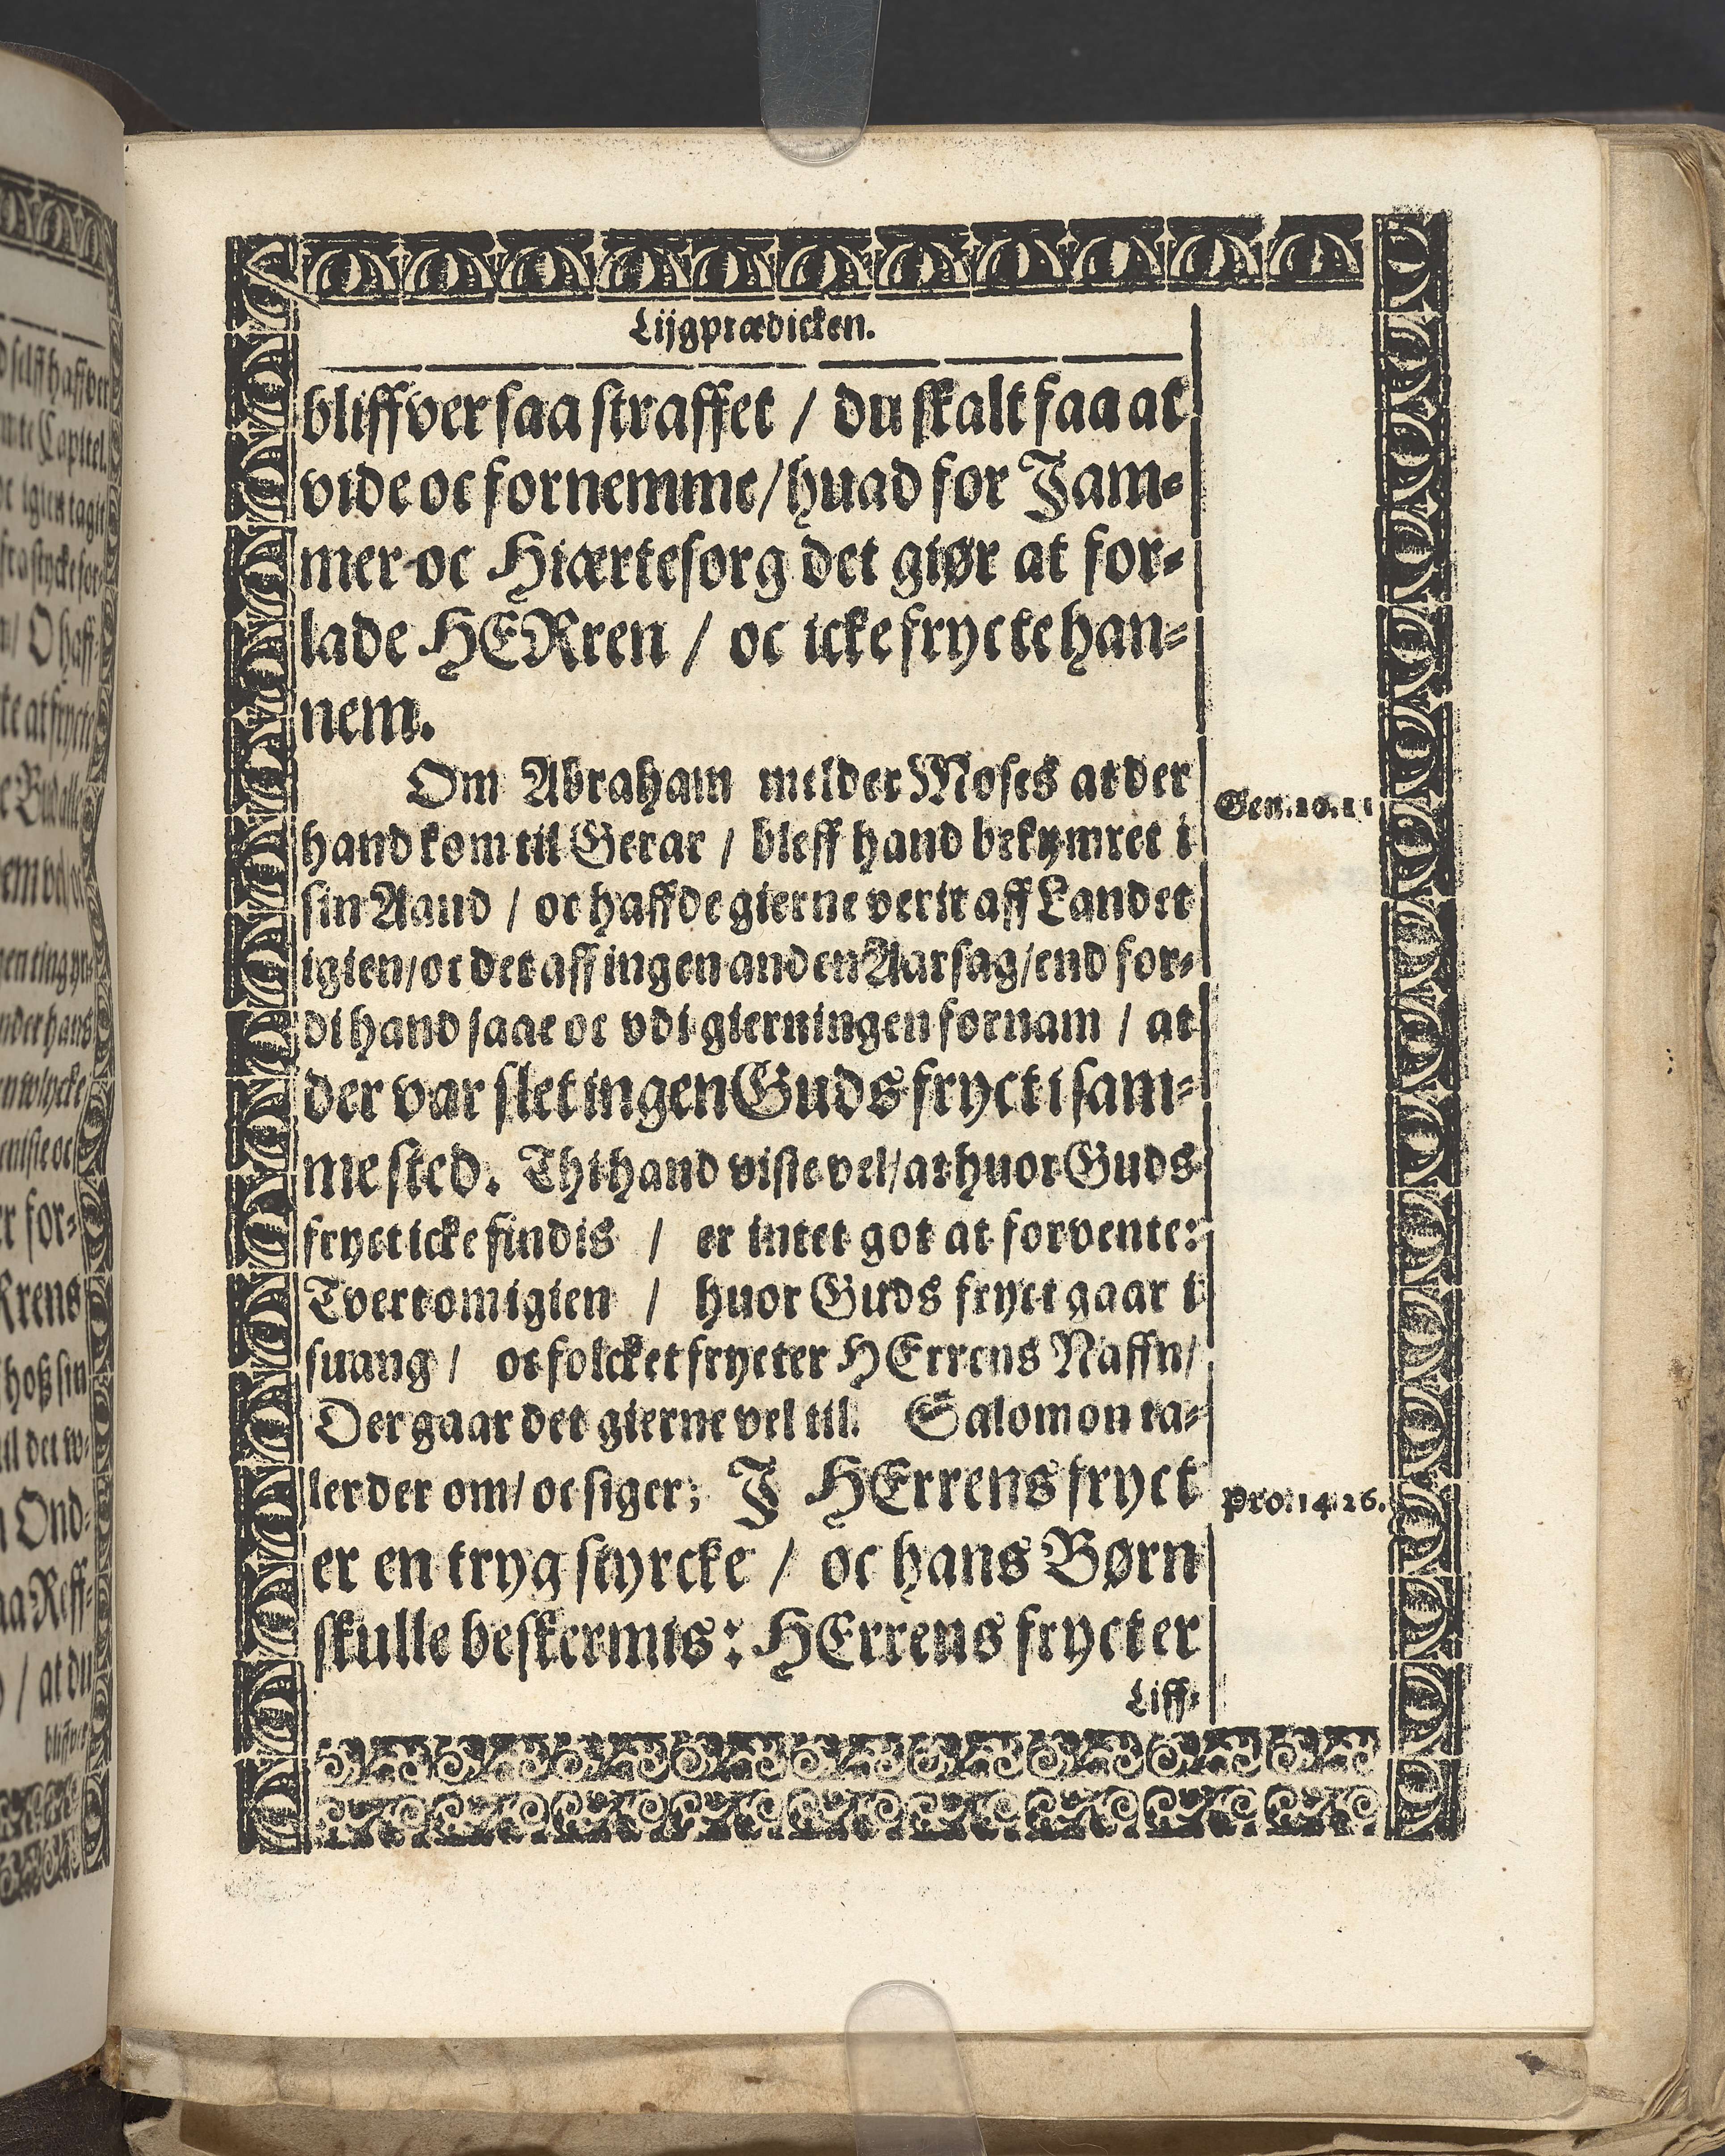 Lijgprædicken.
bliffver saa straffet / du skalt faa at
vide oc fornemme / huad for Jam-
mer oc Hiærtesorg det giør at for-
lade HERren / oc icke frycte han-
nem.
Om Abraham melder Moses at der
Gen. 20. 11
hand kom til Gerar / bleff hand bekymret i
sin Aand / oc haffde gierne verit aff Landet
igien / oc det aff ingen anden Aarsag / end for-
di hand saae oc vdi gierningen fornam / at
der var slet ingen Guds fryct i sam-
me sted. Thi hand viste vel / at huor Guds
fryct icke findis / er intet got at forvente:
Tvertomigien / huor Guds fryct gaar i
suang / oc folcket frycter HErrens Naffn /
Der gaar det gierne vel til. Salomon ta-
ler der om / oc siger; J HErrens fryct
Pro. 14. 26.
er en tryg styrcke / oc hans Børn
skulle beskermis: HErrens fryct er
Liff-
d selff haffver
te Capitel.
oc igien tagit
fra stycke for-
/ O haff-
te at frycte
e Bud alle
gen ting
nder hans
r for-
Rrens
hoß sin
il det
Ond-
aa Reff-
/ at du